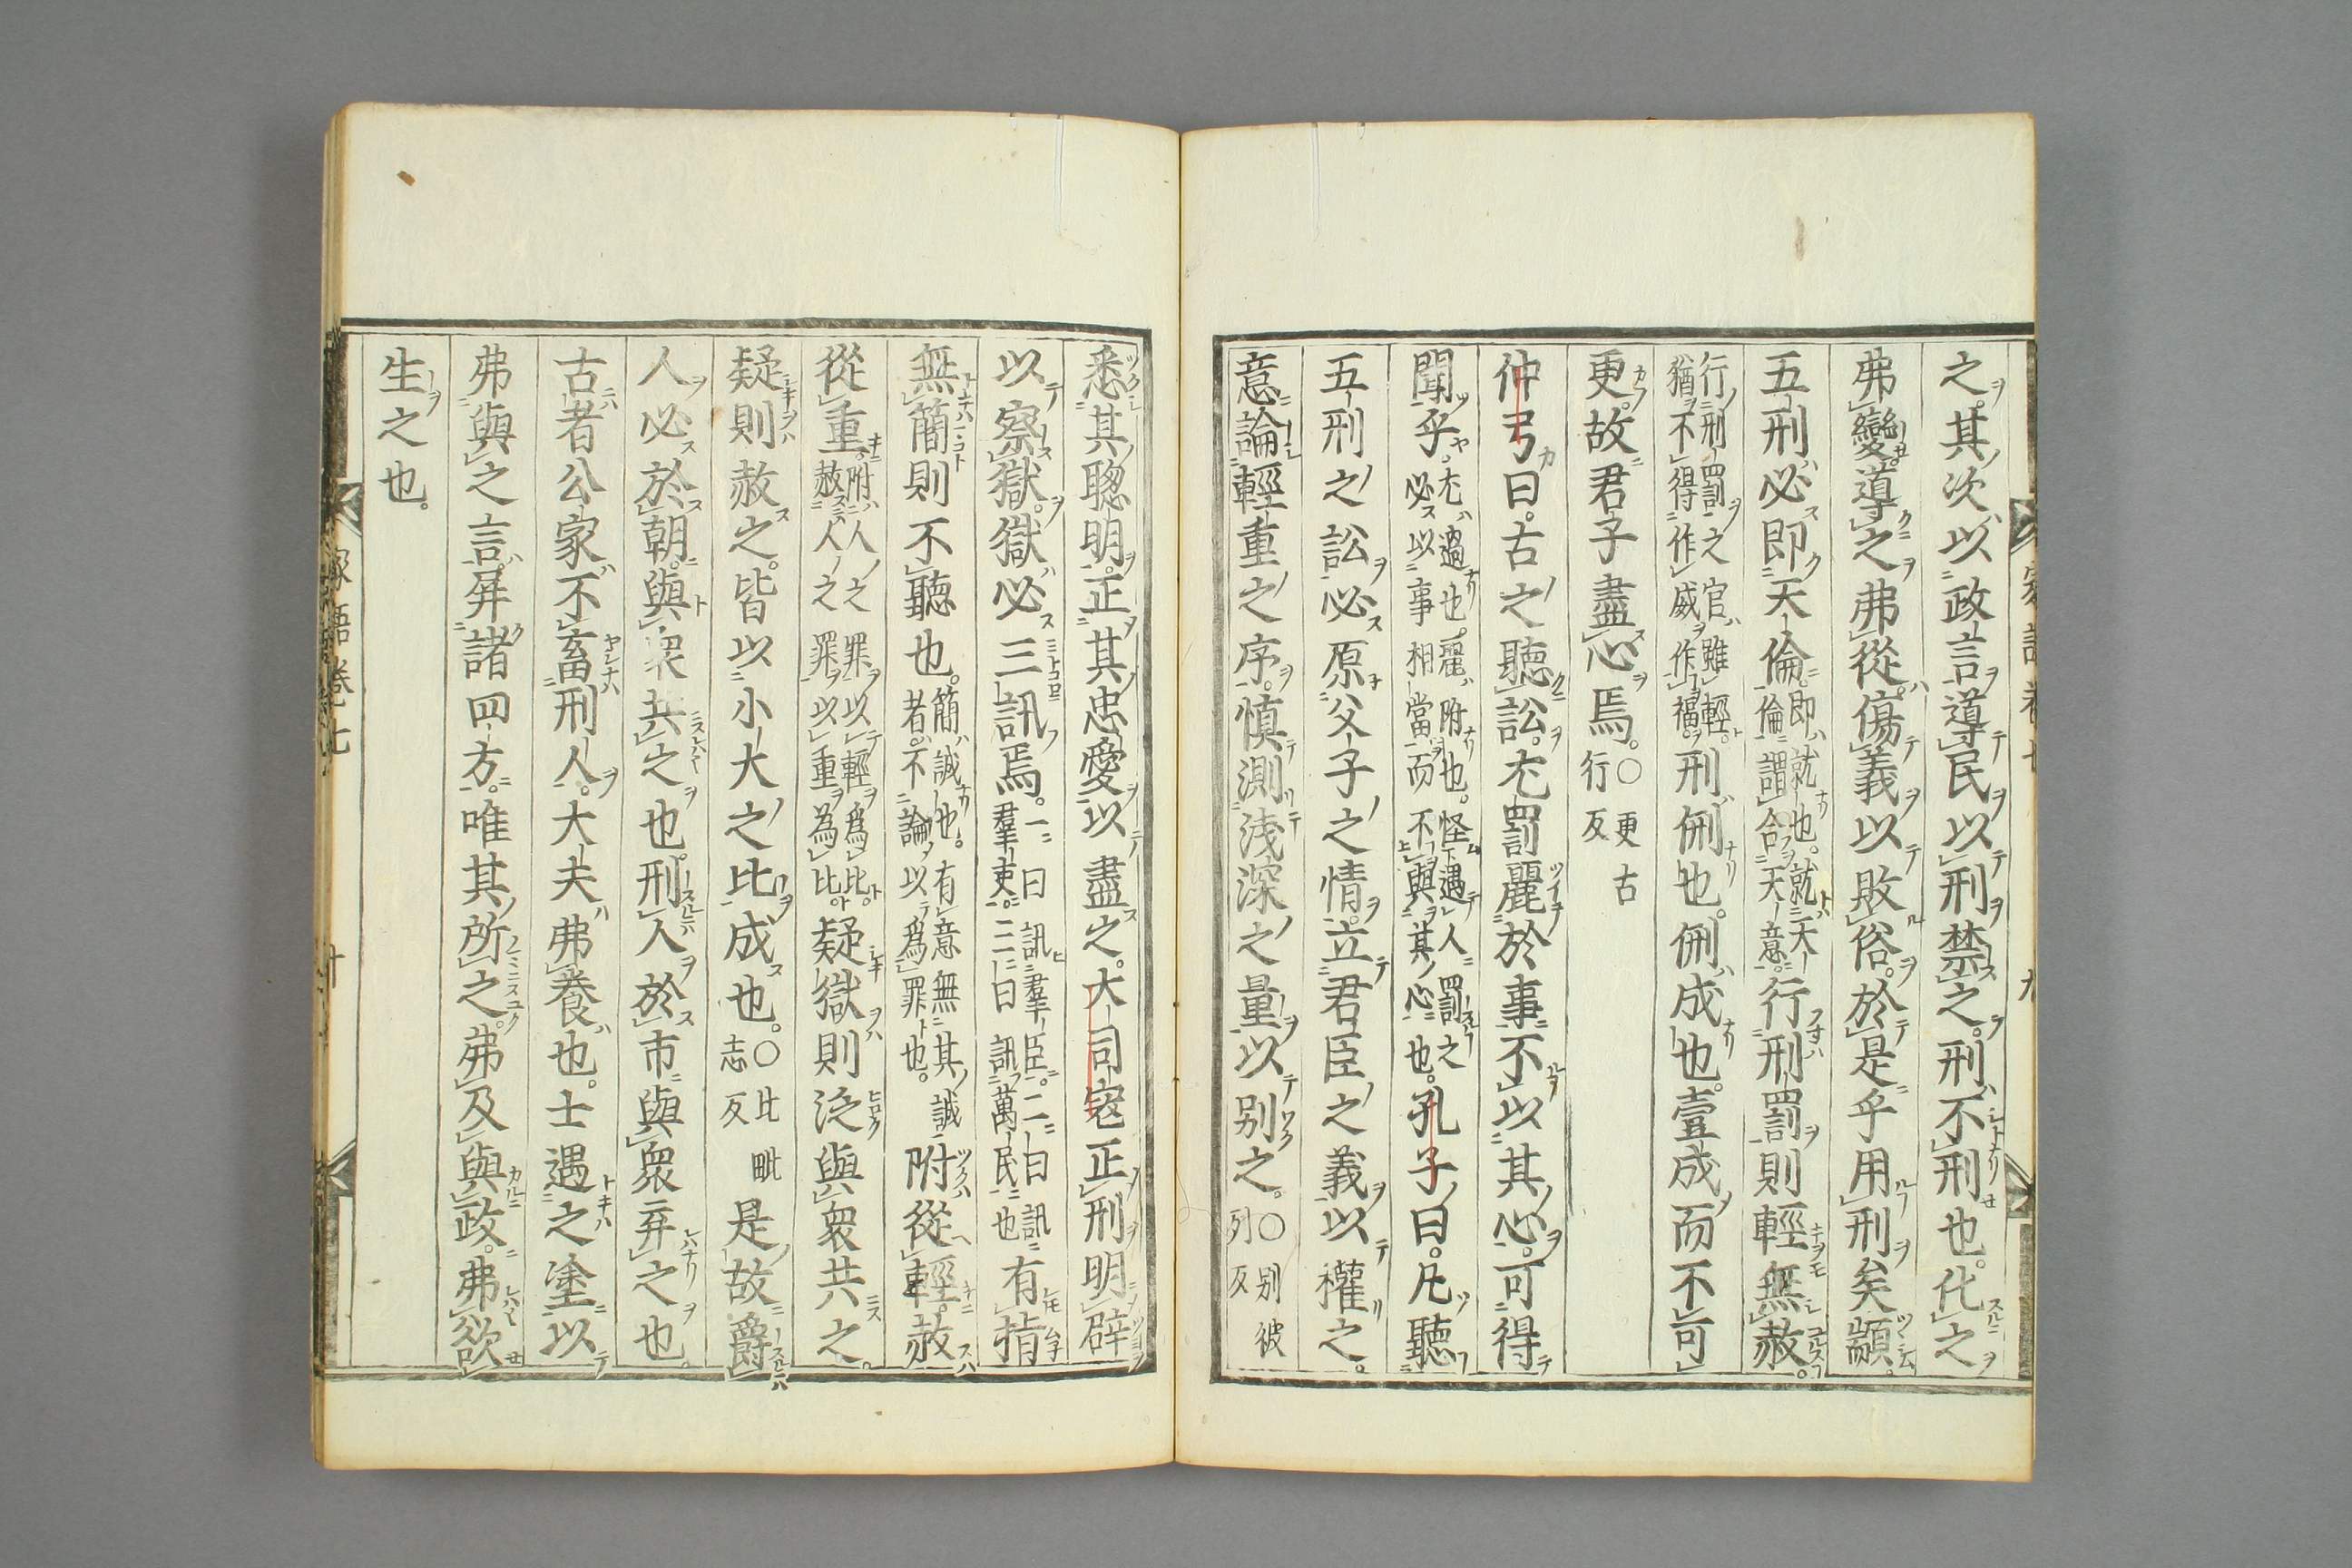 之其次以政言導民以刑禁之。刑不刑也。化之
弗變導之弗從。傷義以敗俗。於是乎用刑矣顓
五刑必即天倫。即就也。就天倫謂合天意。行刑罰則輕無赦。
行刑罰之官雖輕猶不得作威作福。刑侀也。侀成也。壹成而不可
更。故君子盡心焉。〇更古行反
仲弓曰。古之聽訟。尤罰麗於事。不以其心。可得
聞乎。尤過也。麗附也。怪遇人罰之必以事相當而不與其心也。孔子曰。凡聽
五刑之訟必原父子之情立君臣之義以權之。
意論輕重之序。慎測淺深之量以别之。〇别彼列反
悉其聰明。正其忠愛以盡之。大司宼正刑明辟
以察獄。獄必三訊焉。一曰訊羣臣。二曰訊羣吏。三曰訊萬民也有指
無簡則不聽也。簡誠也。有意無其誠者。不論以爲罪也。附從輕赦
從重。附人之罪以輕爲比。赦人之罪以重為比。疑獄則泛與衆共之。
疑則赦之。皆以小大之比成也。〇比毗志反是故爵
人必於朝。與衆共之也。刑人於市。與衆弃之也。
古者公家不畜刑人。大夫弗養也。士遇之塗以
弗與之言。屏諸四方。唯其所之。弗及與政。弗欲
生之也。
家語卷七
九
家語卷七
十